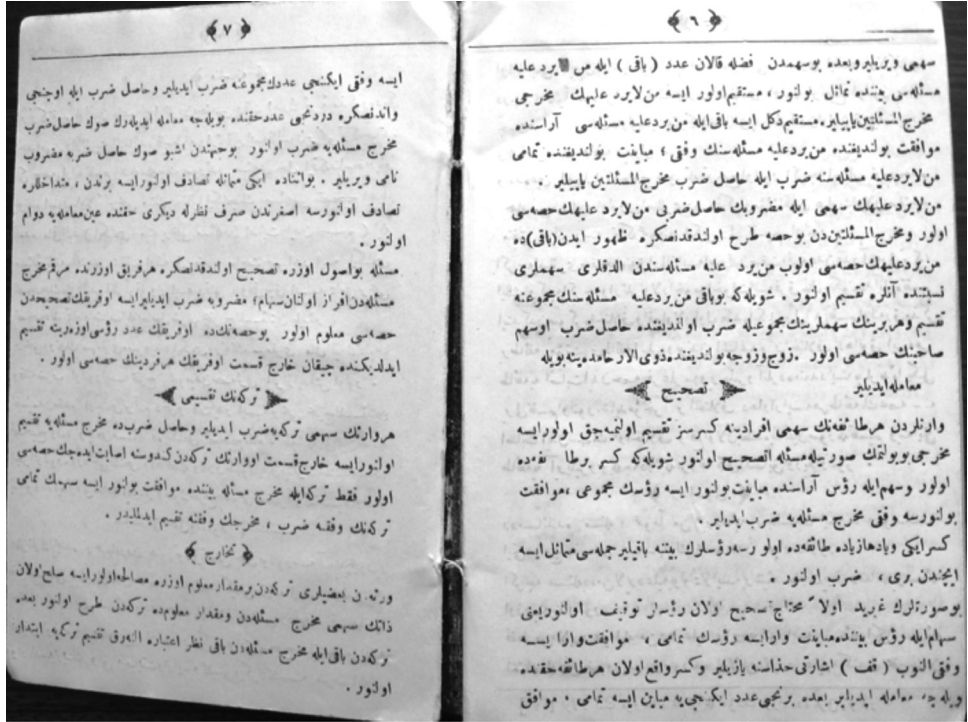 ﴿ ٦ ﴾
سهمی ویریلیر وبعده بوسهمدن فضله قالان عدد ( باقی ) ایله من یرد علیه
مسئله‌سی بیننده تماثل بولنور ، مستقیم اولور ایسه من لایرد علیهك مخرجی
مخرج المسئلتین یاپیلیر. مستقیم دکل ایسه باقی ایله من یرد علیه مسئله‌سی آراسنده
موافقت بولندیغنده من یرد علیه مسئله‌سنك وفقی ؛ مباینت بولندیغنده تمامی
من لایرد علیه مسئله‌سنه ضرب ایله حاصل ضرب مخرج المسئلتین یاپیلیر .
من لایرد علیهك سهمی ایله مضروبك حاصل ضربی من لایرد علیهك حصه‌سی
اولور ومخرج المسئلتین دن بو حصه طرح اولندقدنصکره ظهور ایدن (باقی) ده
من یرد علیهك حصه‌سی اولوب من یرد علیه مسئله‌سندن الدقلری سهملری
نسبتنده آنلره تقسیم اولنور . شویله‌که بوباقی من یردعلیه مسئله‌سنك مجموعنه
تقسیم وهر برینك سهملرینك مجموعیله ضرب اولندیغنده حاصل ضرب اوسهم
صاحبنك حصه‌سی اولور . زوج وزوجه بولندیغنده ذوی الارحامده ینه بویله
معامله ایدیلیر
تصحیح
وارثلردن هر طائفه‌نك سهمی افرادینه کسرسز تقسیم اولنمیه‌جق اولورایسه
مخرجی بویولتمك صورتیله مسئله تصحیح اولنور شویله‌که کسر برطائفه‌ده
اولور وسهم ایله رؤس آراسنده مباینت بولنور ایسه رؤسك مجموعی ، موافقت
بولنورسه وفقی مخرج مسئله‌یه ضرب ایدیلیر .
کسر ایکی ویادها زیاده طائفه‌ده اولورسه رؤسلرك بیننه باقیلیر جمله‌سی متماثل ایسه
ایچندن بری ، ضرب اولنور .
بوصورتلرك غیریده اولاً محتاج تصحیح اولان رؤسلر توقیف اولنوریعنی
سهام ایله رؤس بیننده مباینت وارایسه رؤسك تمامی ، موافقت وارایسه
وفقی النوب ( قف ) اشارتی حذاسنه یازیلیر وکسر واقع اولان هر طائفه حقنده
معامله ایدیلیر بعده برنجی عدد ایکنجی‌یه مباین ایسه تمامی ، موافق
﴿ ٧ ﴾
ایسه وفقی ایکنجی عددك مجموعنه ضرب ایدیلیر وحاصل ضرب ایله اوچنجی
واندنصکره دردنجی عدد حقنده بویله‌جه معامله ایدیله‌رك صوك حاصل ضرب
مخرج مسئله‌یه ضرب اولنور بوجهتدن اشبو صوك حاصل ضربه مضروب
نامی ویریلیر . بواثناده ایکی متماثله تصادف اولنورایسه برندن ، متداخللره
تصادف اولنورسه اصغرندن صرف نظرله دیکری حقنده عین معامله‌یه دوام
اولنور .
مسئله بواصول اوزره تصحیح اولندقدنصکره هر فریق اوزرنده مرقم مخرج
مسئله‌دن افراز اولنان سهام ؛ مضروبه ضرب ایدیلیرایسه اوفریقك تصحیحدن
حصه‌سی معلوم اولور بوحصه‌نك‌ده اوفریقك عدد رؤسی اوزرینه تقسیم
ایدلدیکنده چیقان خارج قسمت اوفریقك هر فردینك حصه‌سی اولور .
ترکه‌نك تقسیمی
هر وارثك سهمی ترکه‌یه ضرب ایدیلیر وحاصل ضرب‌ده مخرج مسئله‌یه تقسیم
اولنورایسه خارج قسمت اووارثك ترکه‌دن کندوسنه اصابت ایده‌جك حصه‌سی
اولور فقط ترکه ایله مخرج مسئله بیننده موافقت بولنور ایسه سهمك تمامی
ترکه‌نك وفقنه ضرب ، مخرجك وفقنه تقسیم ایدلملیدر .
﴿ تخارج ﴾
ورثه‌دن بعضیلری ترکه‌دن برمقدار معلوم اوزره مصالحه اولورایسه صلح اولان
ذاتك سهمی مخرج مسئله‌دن ومقدار معلوم‌ده ترکه‌دن طرح اولنور بعده
ترکه‌دن باقی ایله مخرج مسئله‌دن باقی نظر اعتباره النه‌رق تقسیم ترکه‌یه ابتدار
اولنور .